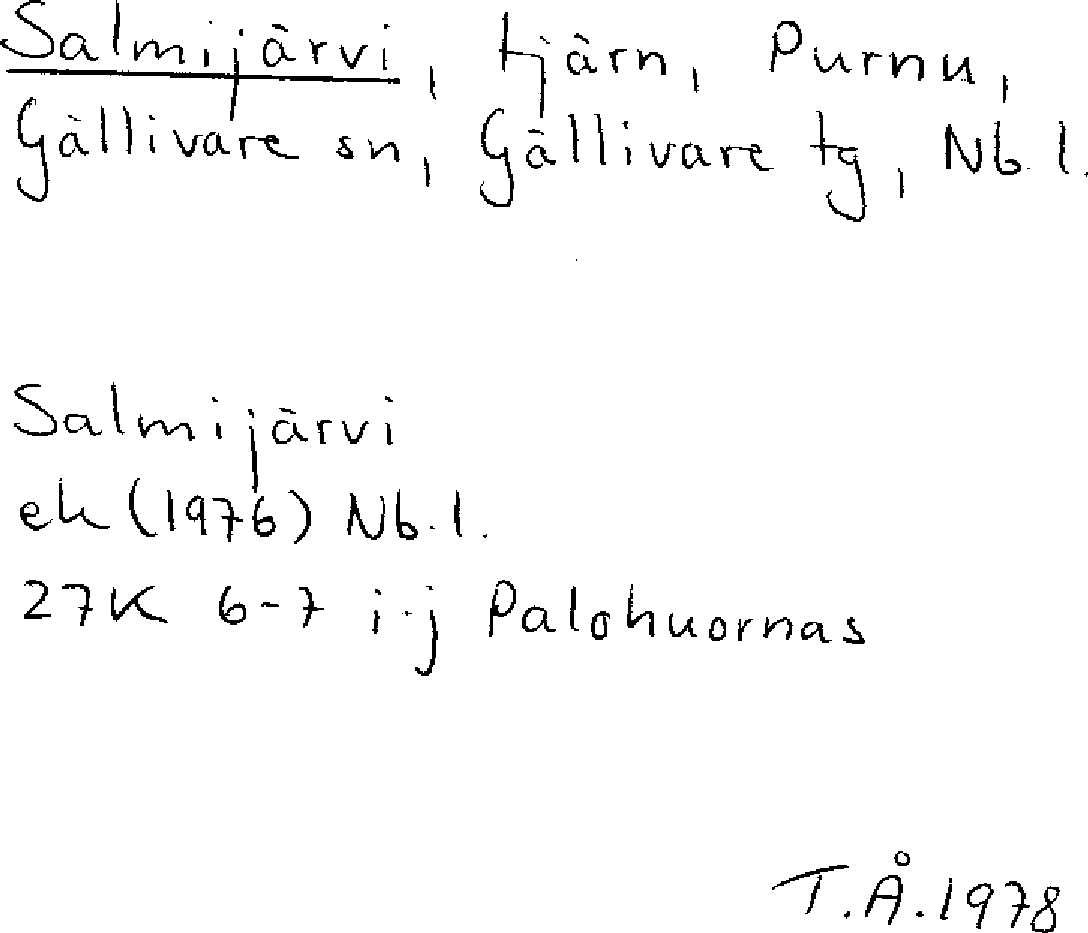 Salmijärvi, tjärn, Purnu,
Gällivare sn, Gällivare tg, Nb.l.
Salmijärvi
ek (1976) Nb.l.
27K 6-7 i-j Palohuornas
T.Å.1978